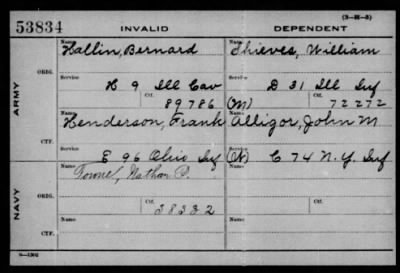 (3-H-3)
53834 INVALID DEPENDENT
Name Name
Hallin, Bernard Thieves, William
ORIG. Service Service
H 9 Ill Cav D 31 Ill Inf
Ctf. Ctf.
89786 (M) 72272
ARMY
Name Name
Henderson, Frank Allizor, John M
CTF. Service Service
E 96 Ohio Inf (W) C 74 N.Y. Inf
NAVY
Name Name
Towne, Nathan P.
ORIG. Ctf. Ctf.
38332
Name Name
CTF.